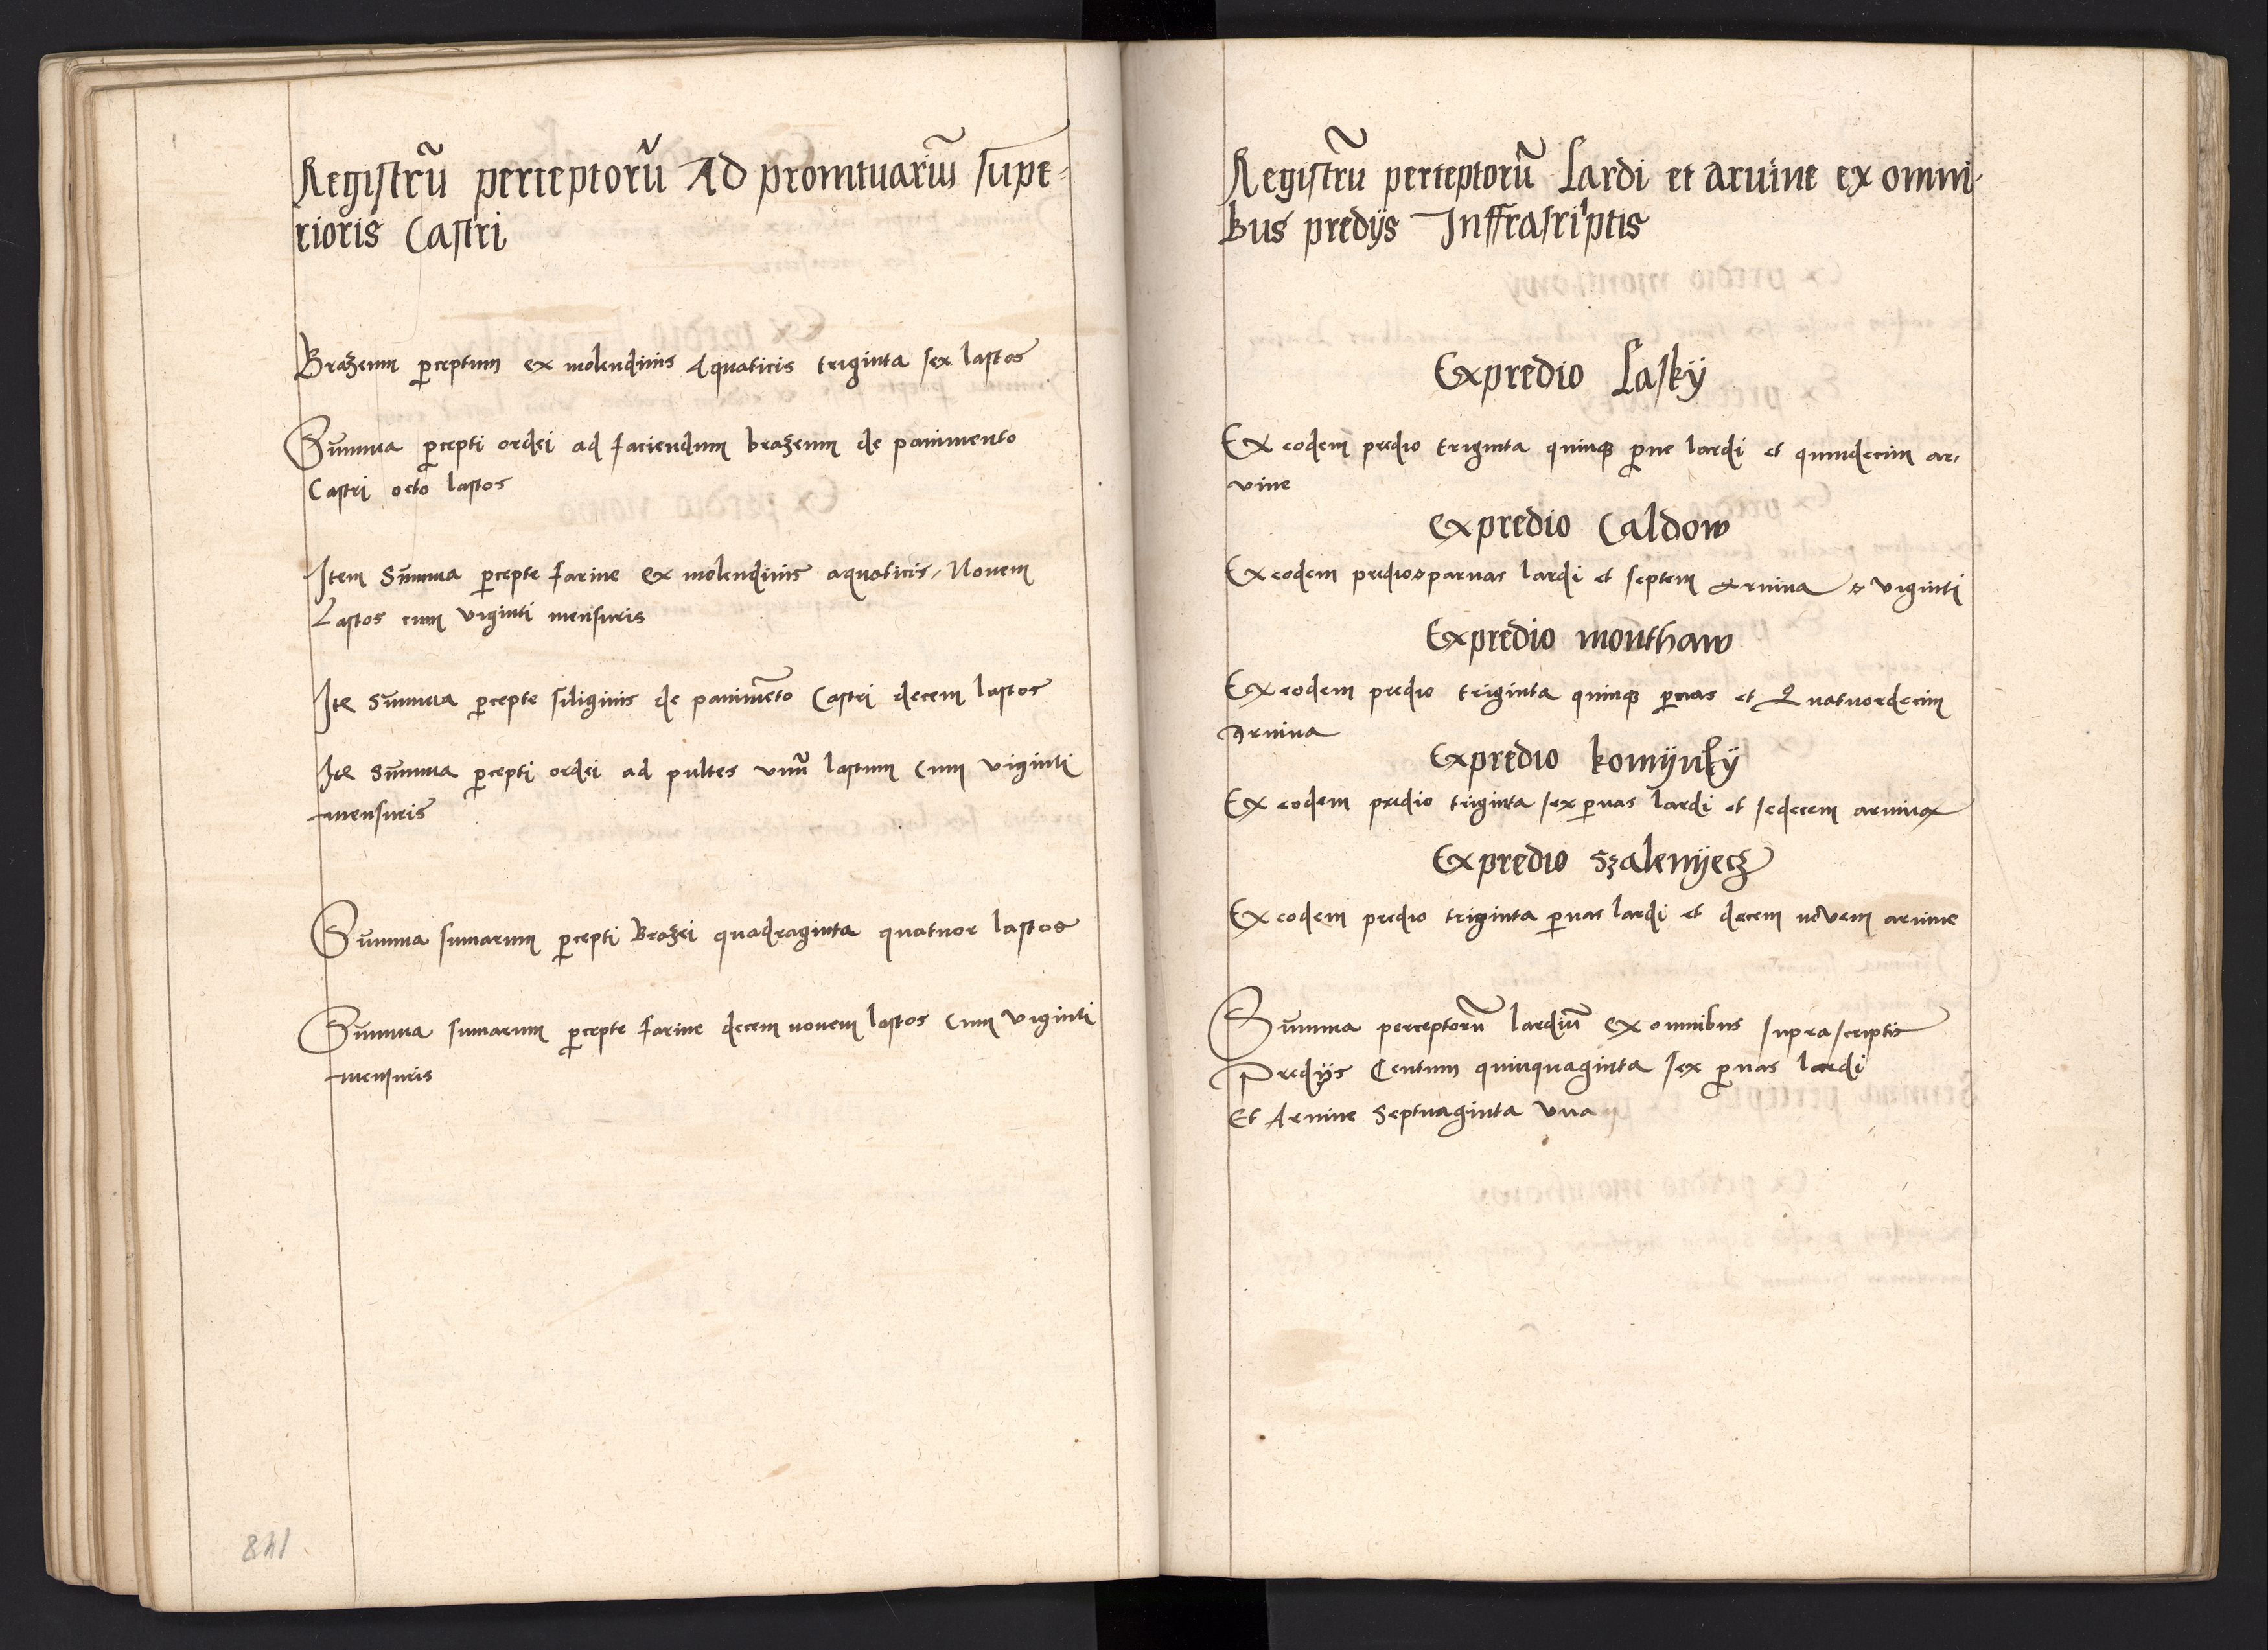 Registrũ perceptorũ Ad promtuariũ supe-
rioris Castri
Braʒeum perceptum ex molendinis Aquaticis triginta sex lastos
Sum̃ma percepti ordei ad faciendum braʒeum de pauimento
Castri octo lastos
Item Sum̃ma percepte farine ex molendinis aquaticis, Nouem
Lastos cum viginti mensuris
Itẽ Sum̃ma percepte siliginis de pauimẽto Castri decem lastos
Itẽ Sum̃ma percepti ordei ad pultes vnũ lastum Cum viginti
mensuris
Sum̃ma sumarum percepti Braʒei quadraginta quatuor lastos
Sum̃ma sumarum percepte farine decem nouem lastos Cum viginti
mensuris
148
Registrũ perceptorũ Lardi et aruine ex omni-
bus predijs Inffrascriptis
Ex predio Laskÿ
Ex eodem predio triginta quinqꝫ perne lardi et quindecim ar,
uine
ex predio Caldow
Ex eodem predio parnas lardi et septem Aruina viginti
Ex predio monthaw
Ex eodem predio triginta quinqꝫ pernas et Quatuordecim
Aruina
Ex predio komÿnkÿ
Ex eodem predio triginta sex pernas lardi et sedecem aruina
Ex predio Szalenÿecz
Ex eodem predio triginta pernas lardi et decem novem aruine
Sum̃ma perceptorũ lardiũ ex omnibus suprascriptis
Predÿs Centum quinquaginta sex pernas lardi
Et Aruine Septuaginta vna